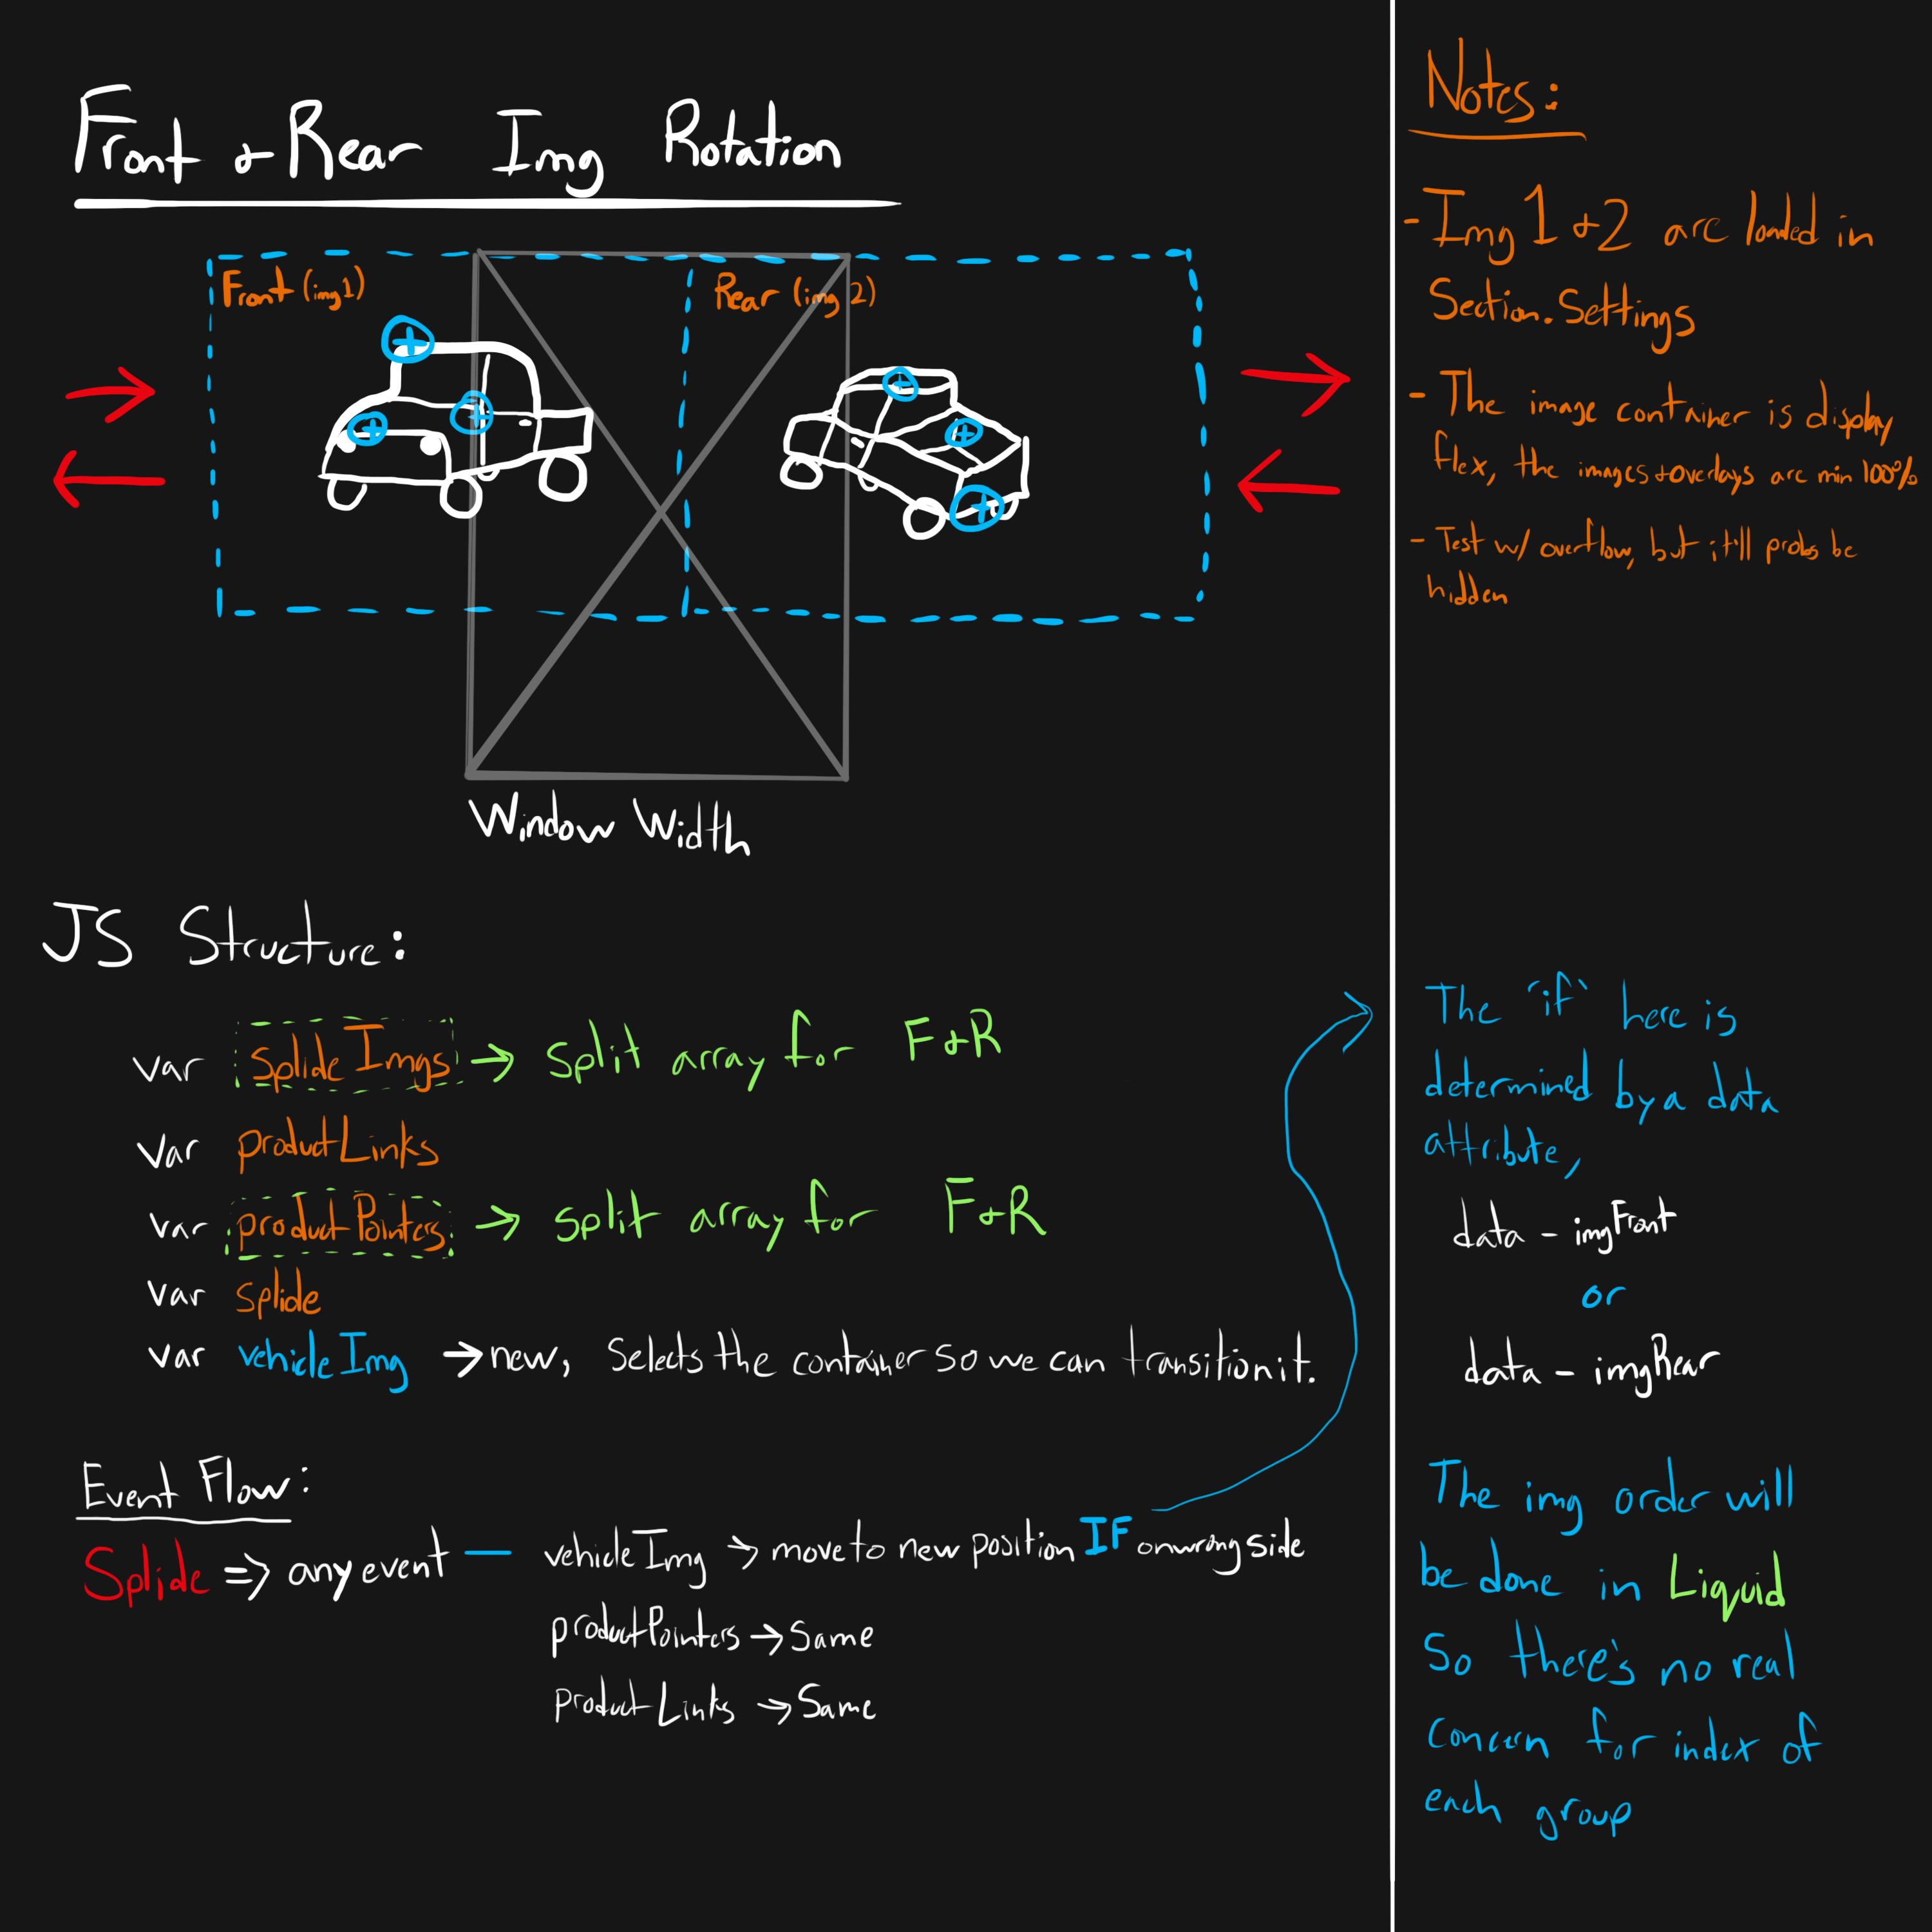 Front & Rear Img Rotation
Front (img 1)
Rear (img 2)
Window Width
JS Structure:
var splideImgs → split array for F & R
var productLinks
var productPointers → split array for F & R
var splide
var vehicleImg → new, Selects the container so we can transition it.
Event Flow:
Splide => any event — vehicleImg → move to new position IF on wrong side
productPointers → Same
productLinks → Same
Notes:
- Img 1 & 2 are loaded in
Section.Settings
- The image container is display
flex, the images & overlays are min 100%
- Test w/ overflow, but it'll probs be
hidden
The `if` here is
determined by a data
attribute,
data - imgFront
or
data - imgRear
The img order will
be done in Liquid
So there's no real
concern for index of
each group